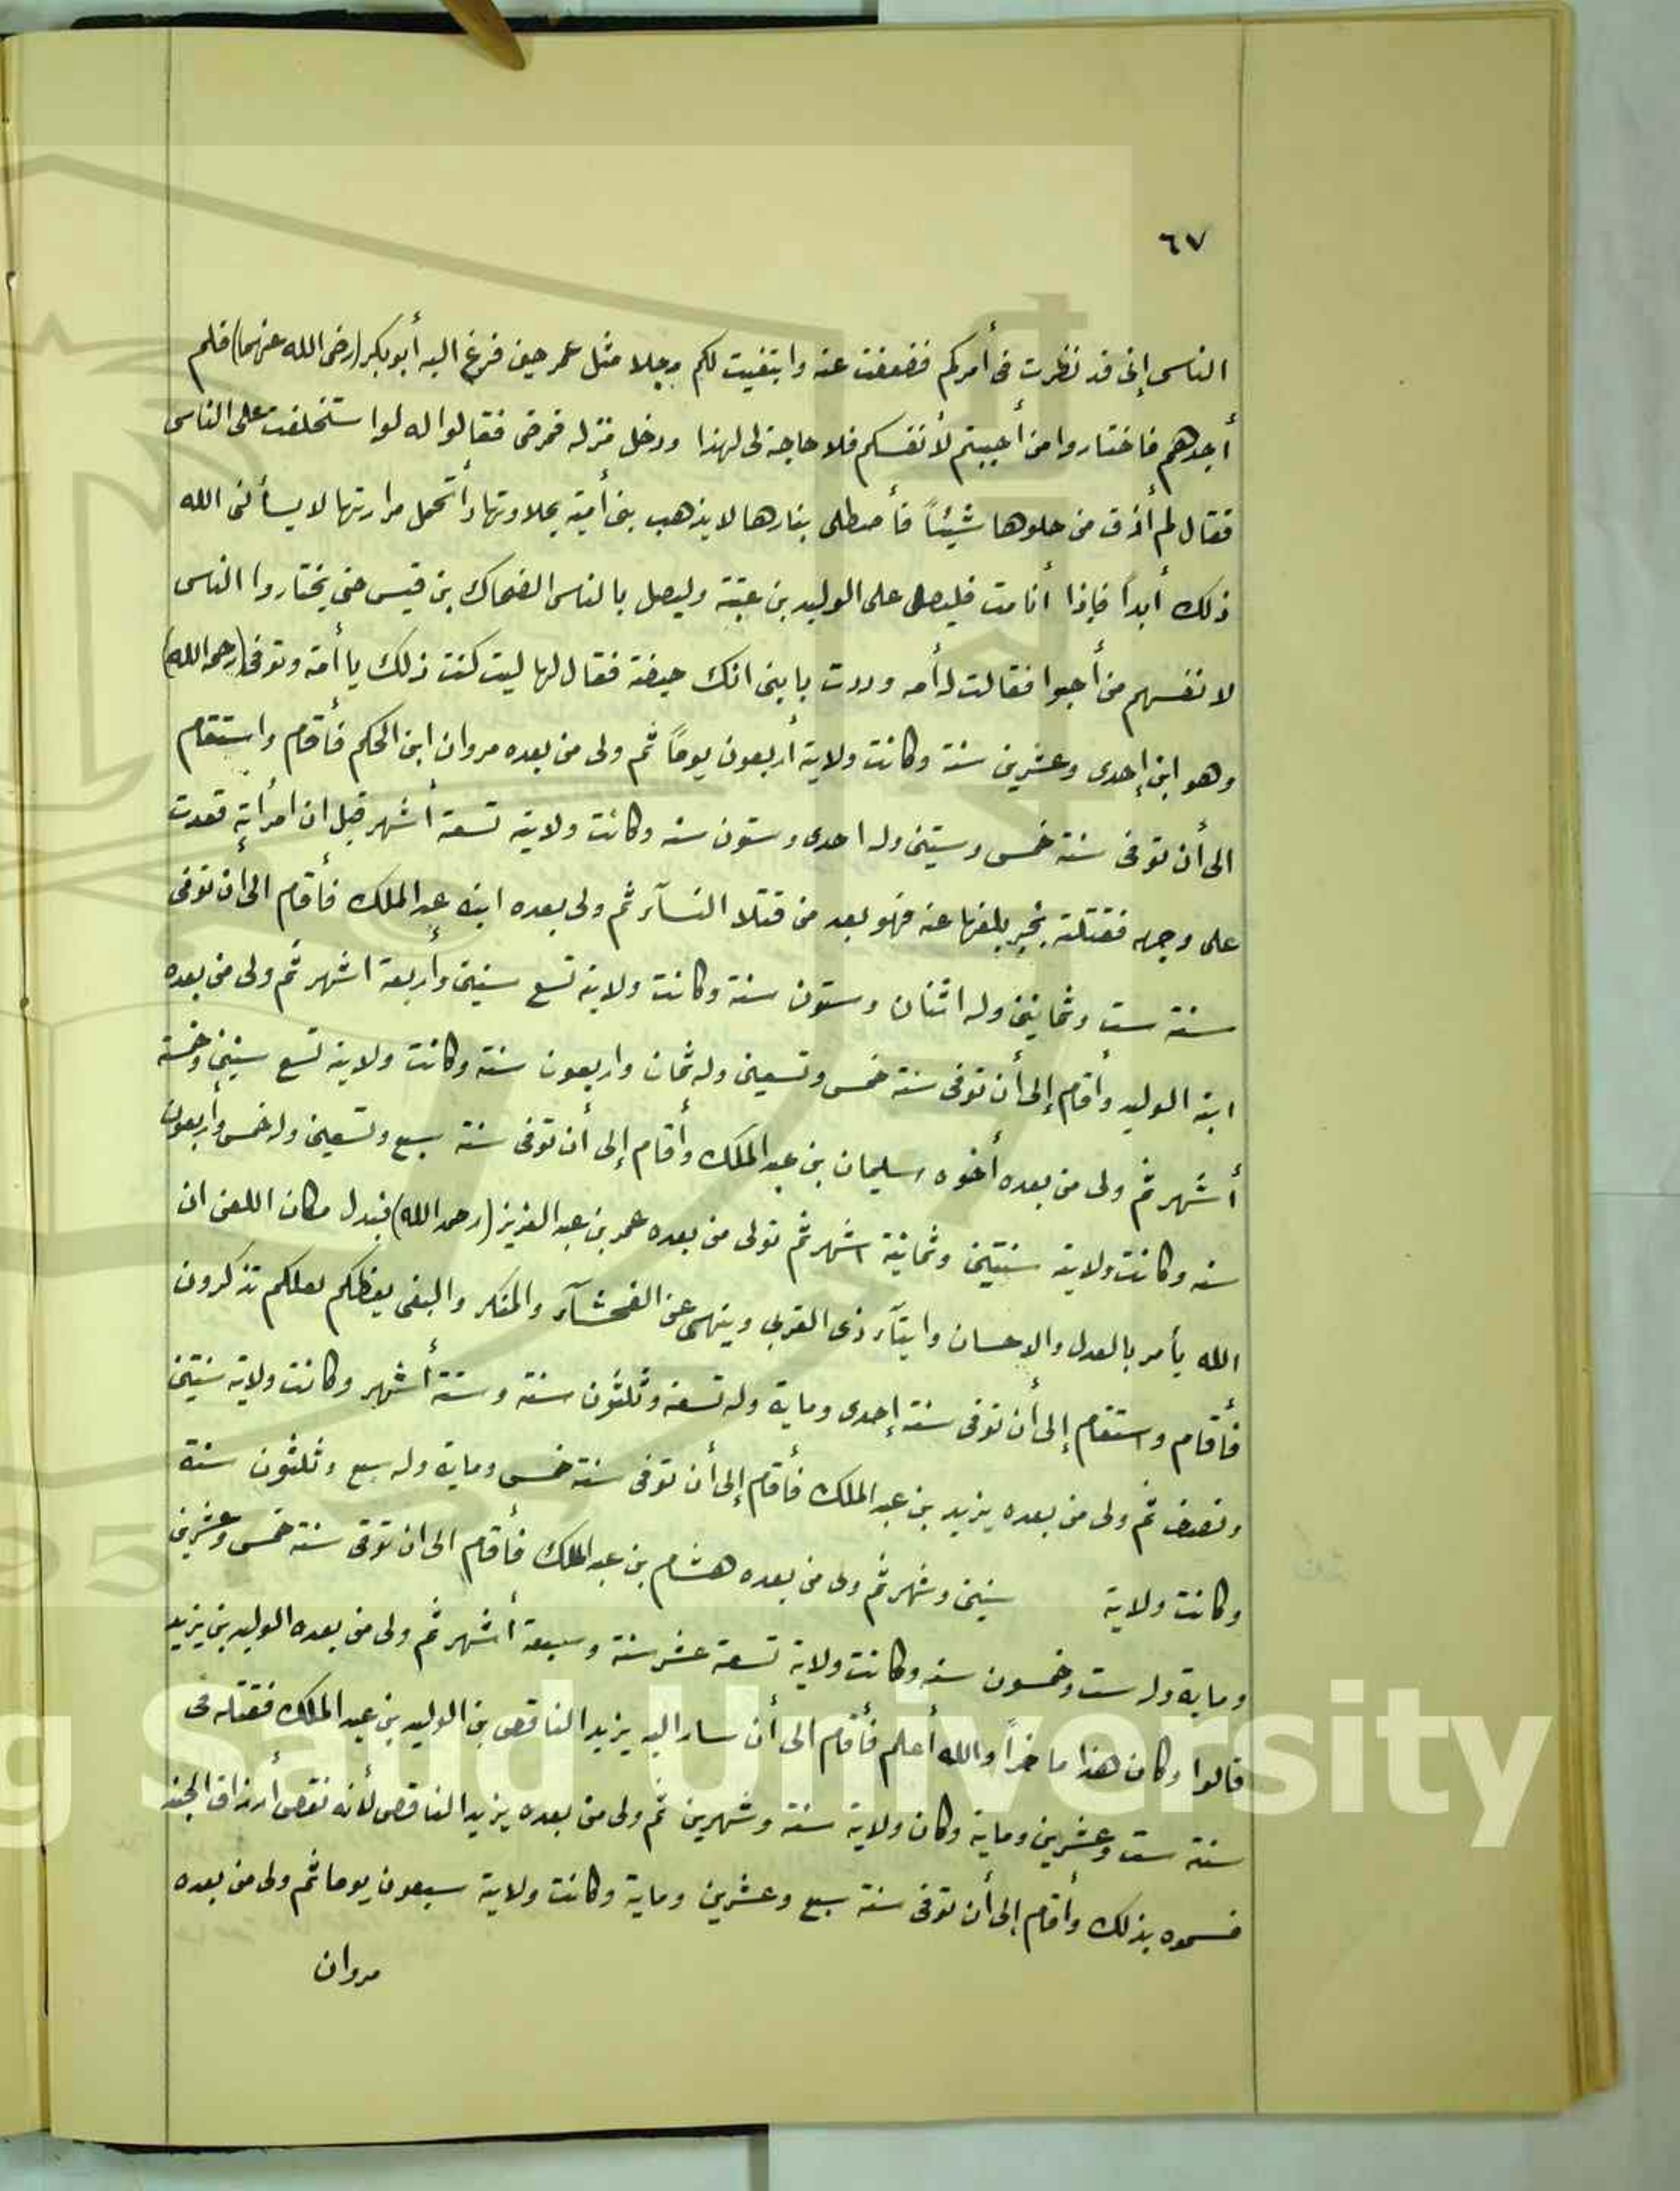 ٦٧
الناس إنى قد نظرت فى أمركم فضعفت عنه وابتغيت لكم رجلا مثل عمر حين فزع اليه أبو بكر (رضى الله عنهما) فلم
أجدهم فاختاروا من أحببتم لأنفسكم فلا حاجة لى لهذا ودخل منزله فمرض فقالوا له لو استخلفت على الناس
فقال لم أذق من حلوها شيئاً فأصطلى بنارها لا يذهب بنى أمية بحلاوتها وأتحمل مرارتها لا يسألنى الله
ذلك أبداً فإذا أنا مت فليصل على الوليد بن عتبة وليصل بالناس الضحاك بن قيس حتى يختاروا الناس
لانفسهم من أحبوا فقالت له أمه وددت يا بنى انك حيضة فقال لها ليت كنت ذلك يا أمه وتوفى (رحمه الله)
وهو ابن إحدى وعشرين سنة وكانت ولاية أربعون يوماً ثم ولى من بعده مروان ابن الحكم فأقام واستقام
الى أن توفى سنة خمس وستين وله احدى وستون سنه وكانت ولايته تسعة أشهر قيل ان امرأته قعدت
على وجهه فقتلته بخبر بلغها عنه فهو بعد من قتلا النسآء ثم ولى بعده ابنه عبد الملك فأقام الى أن توفى
سنة ست وثمانين وله اثنان وستون سنة وكانت ولايته تسع سنين وأربعة اشهر ثم ولى من بعده
ابنه الوليد وأقام إلى أن توفى سنة خمس وتسعين وله ثمان واربعون سنة وكانت ولايته تسع سنين وخمسة
أشهر ثم ولى من بعده أخوه سليمان بن عبد الملك وأقام إلى أن توفى سنة سبع وتسعين وله خمس وأربعون
سنه وكانت ولايته سنتين وثمانية اشهر ثم تولى من بعده عمر بن عبد العزيز (رحمه الله) فبدل مكان اللعن ان
الله يأمر بالعدل والاحسان وايتآء ذى القربى وينهى عن الفحشآء والمنكر والبغى يعظكم لعلكم تذكرون
فأقام واستقام إلى أن توفى سنة إحدى وماية وله تسعة وثلثون سنة وستة أشهر وكانت ولاية سنتين
ونصف ثم ولى من بعده يزيد بن عبد الملك فأقام إلى أن توفى سنة خمس وماية وله سبع وثلثون سنة
وكانت ولاية سنين وشهر ثم ولى من بعده هشام بن عبد الملك فأقام الى ان توفى سنة خمس وعشرين
وماية وله ست وخمسون سنه وكانت ولاية تسعة عشر سنة وسبعة أشهر ثم ولى من بعده الوليد بن يزيد
قالوا وكان هذا ماخراً والله أعلم فأقام الى أن سار اليه يزيد الناقص بن الوليد بن عبد الملك فقتله فى
سنة ست وعشرين وماية وكان ولاية سنة وشهرين ثم ولى من بعده يزيد الناقص لأنه نقص أرزاق الجند
فسموه بذلك وأقام إلى أن توفى سنة سبع وعشرين وماية وكانت ولاية سبعون يوما ثم ولى من بعده
مروان
g Saud University
95